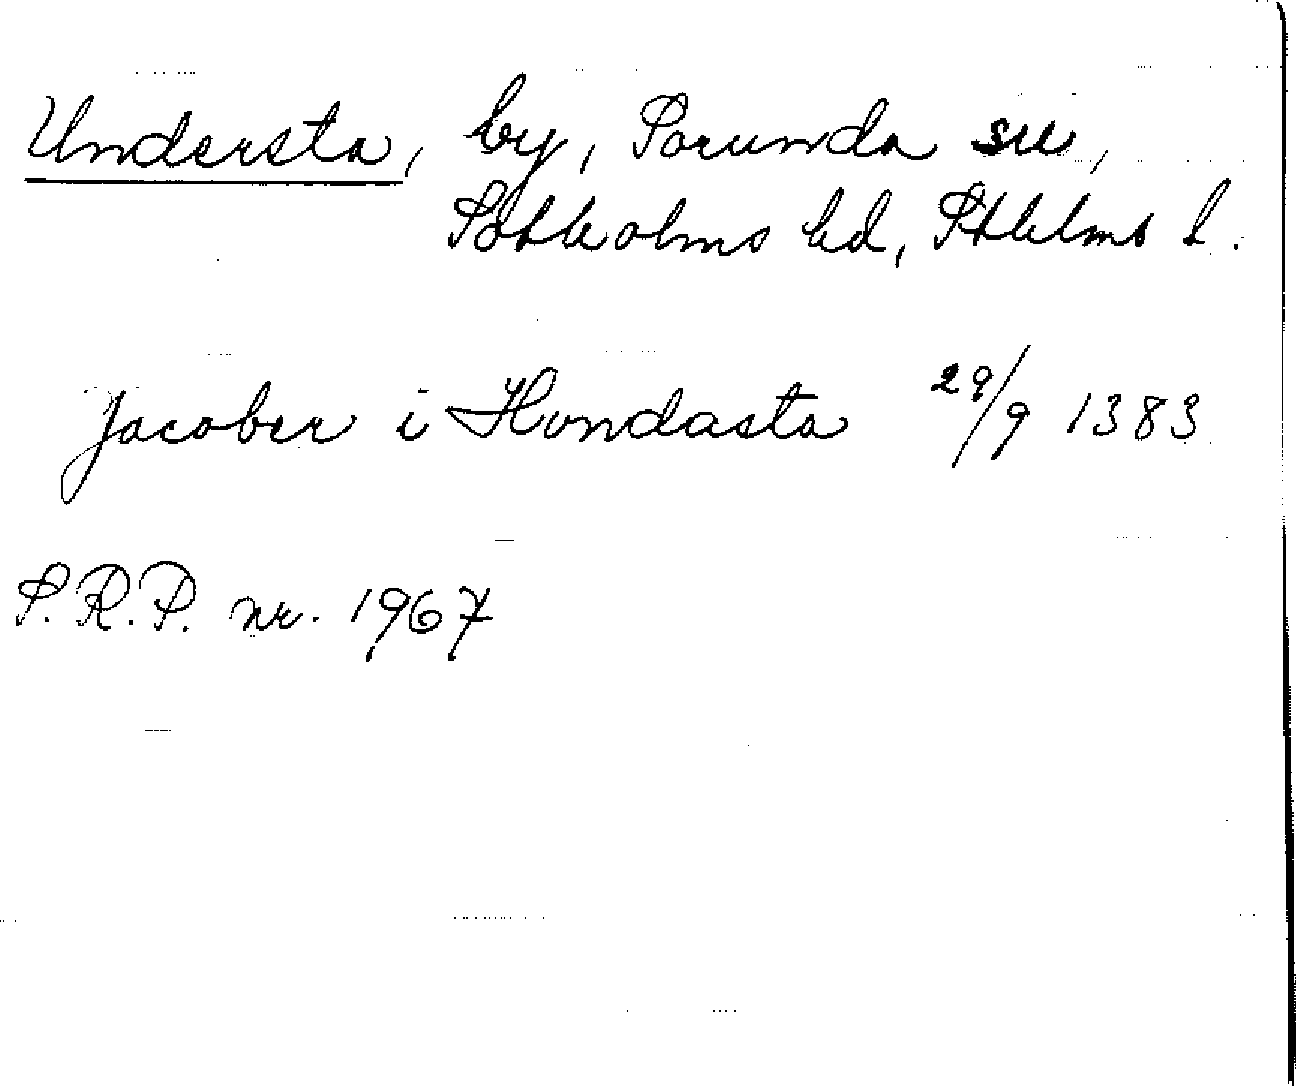 Understa, by, Sorunda sn,
Sotholms hd, Sthlms l.
Jacober i Hondasta 29/9 1383
S.R.P. nr. 1967